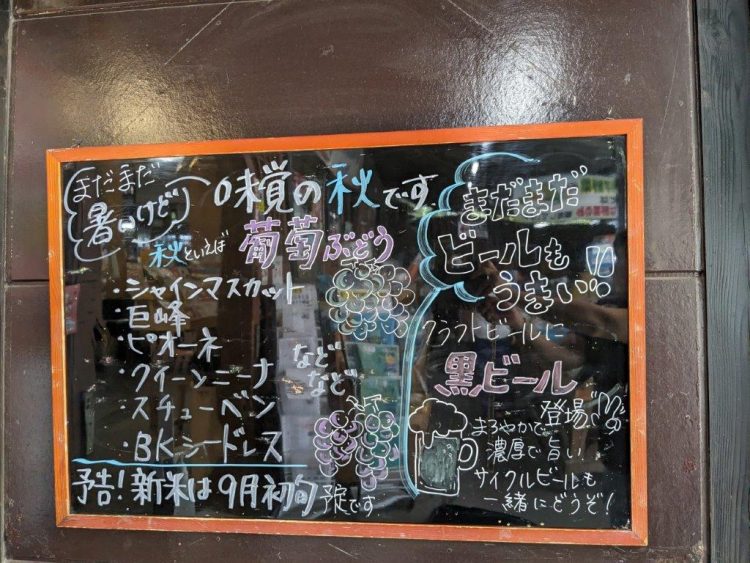 まだまだ
暑いけど
味覚の秋です
秋といえば 葡萄ぶどう
・シャインマスカット
・巨峰
・ピオーネ
・クイーンニーナ
・スチューベン
・BKシードレス
などなど
予告！新米は9月初旬予定です
まだまだ
ビールも
うまい!!
クラフトビールに
黒ビール
登場!!
まろやかで
濃厚で旨い
サイクルビールも
一緒にどうぞ！